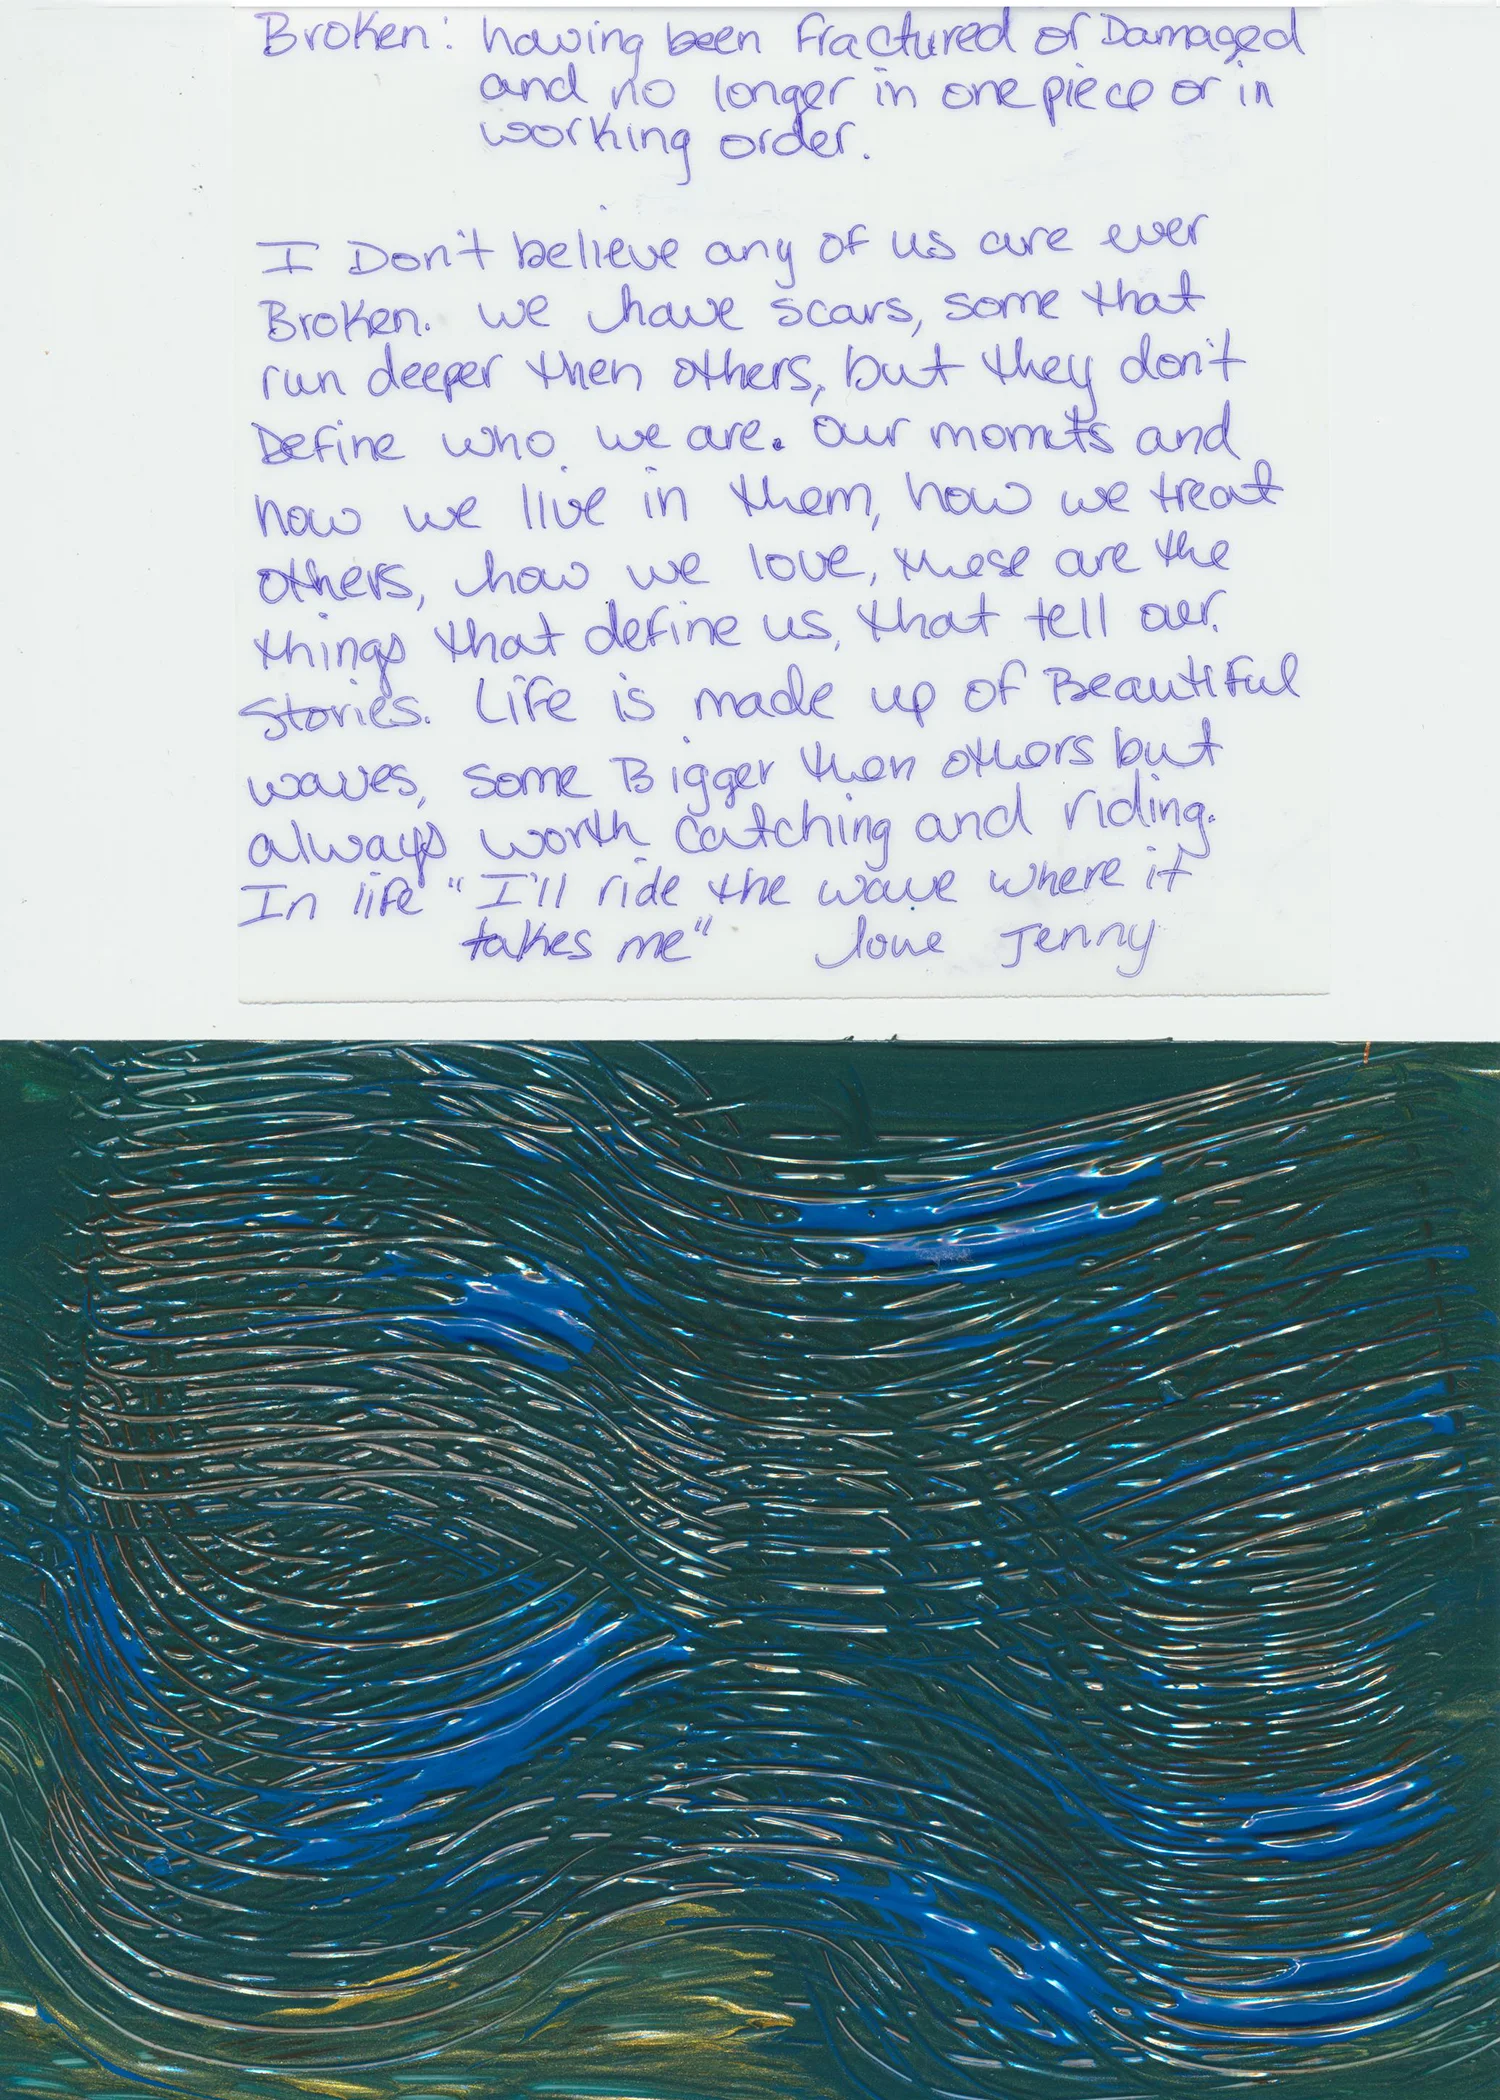 Broken: having been fractured or Damaged
and no longer in one piece or in
working order.
I Don't believe any of us are ever
Broken. we have scars, some that
run deeper then others, but they don't
Define who we are. Our momets and
how we live in them, how we treat
others, how we love, these are the
things that define us, that tell our
stories. Life is made up of Beautiful
waves, some Bigger then others but
always worth catching and riding.
In life "I'll ride the wave where it
takes me" love Jenny